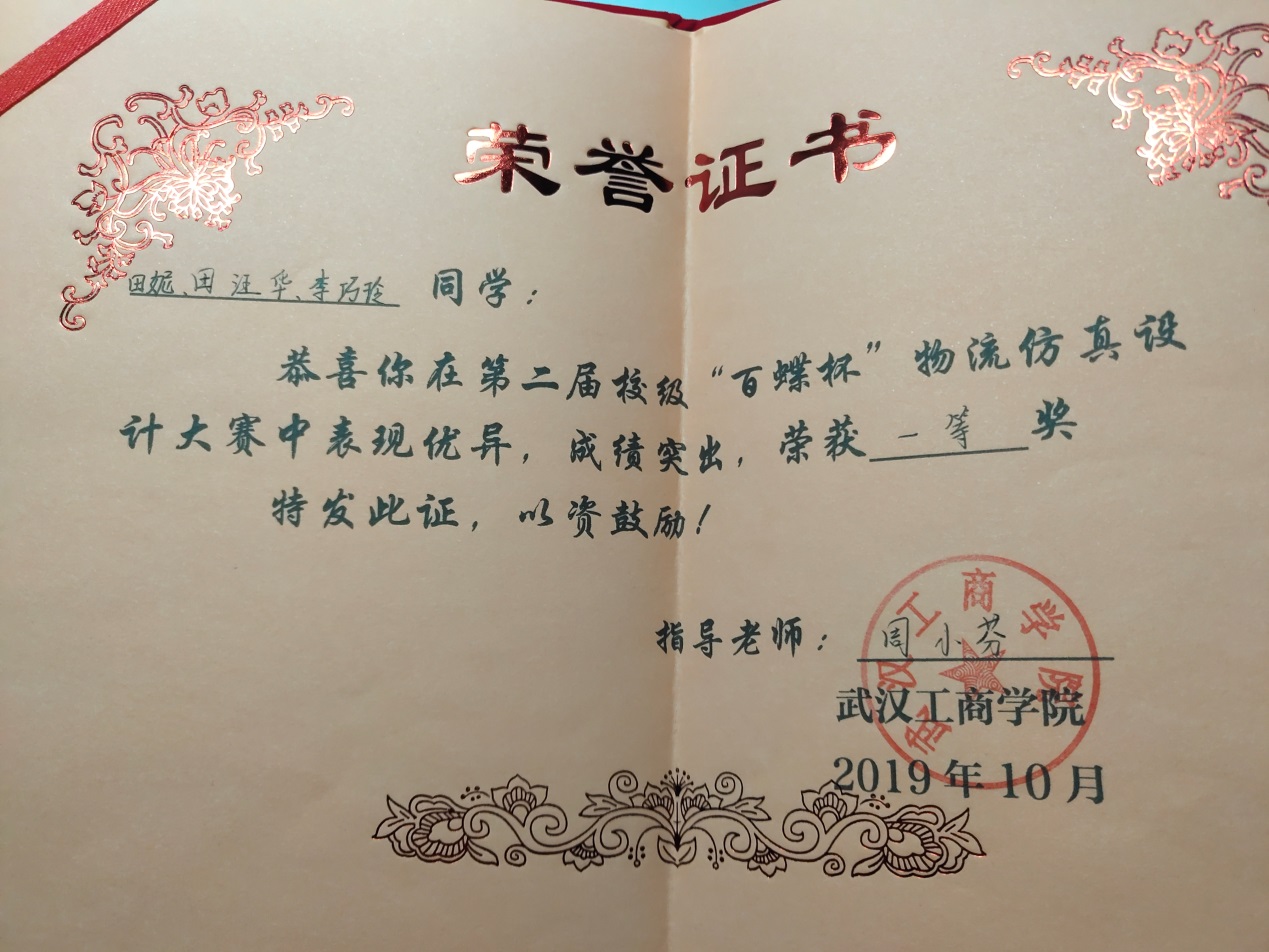 荣誉证书
田妮、田汪华、李巧玲 同学：
恭喜你在第二届校级“百蝶杯”物流仿真设
计大赛中表现优异，成绩突出，荣获一等奖
特发此证，以资鼓励！
指导老师：周小芬
武汉工商学院
武汉工商学院
2019年10月